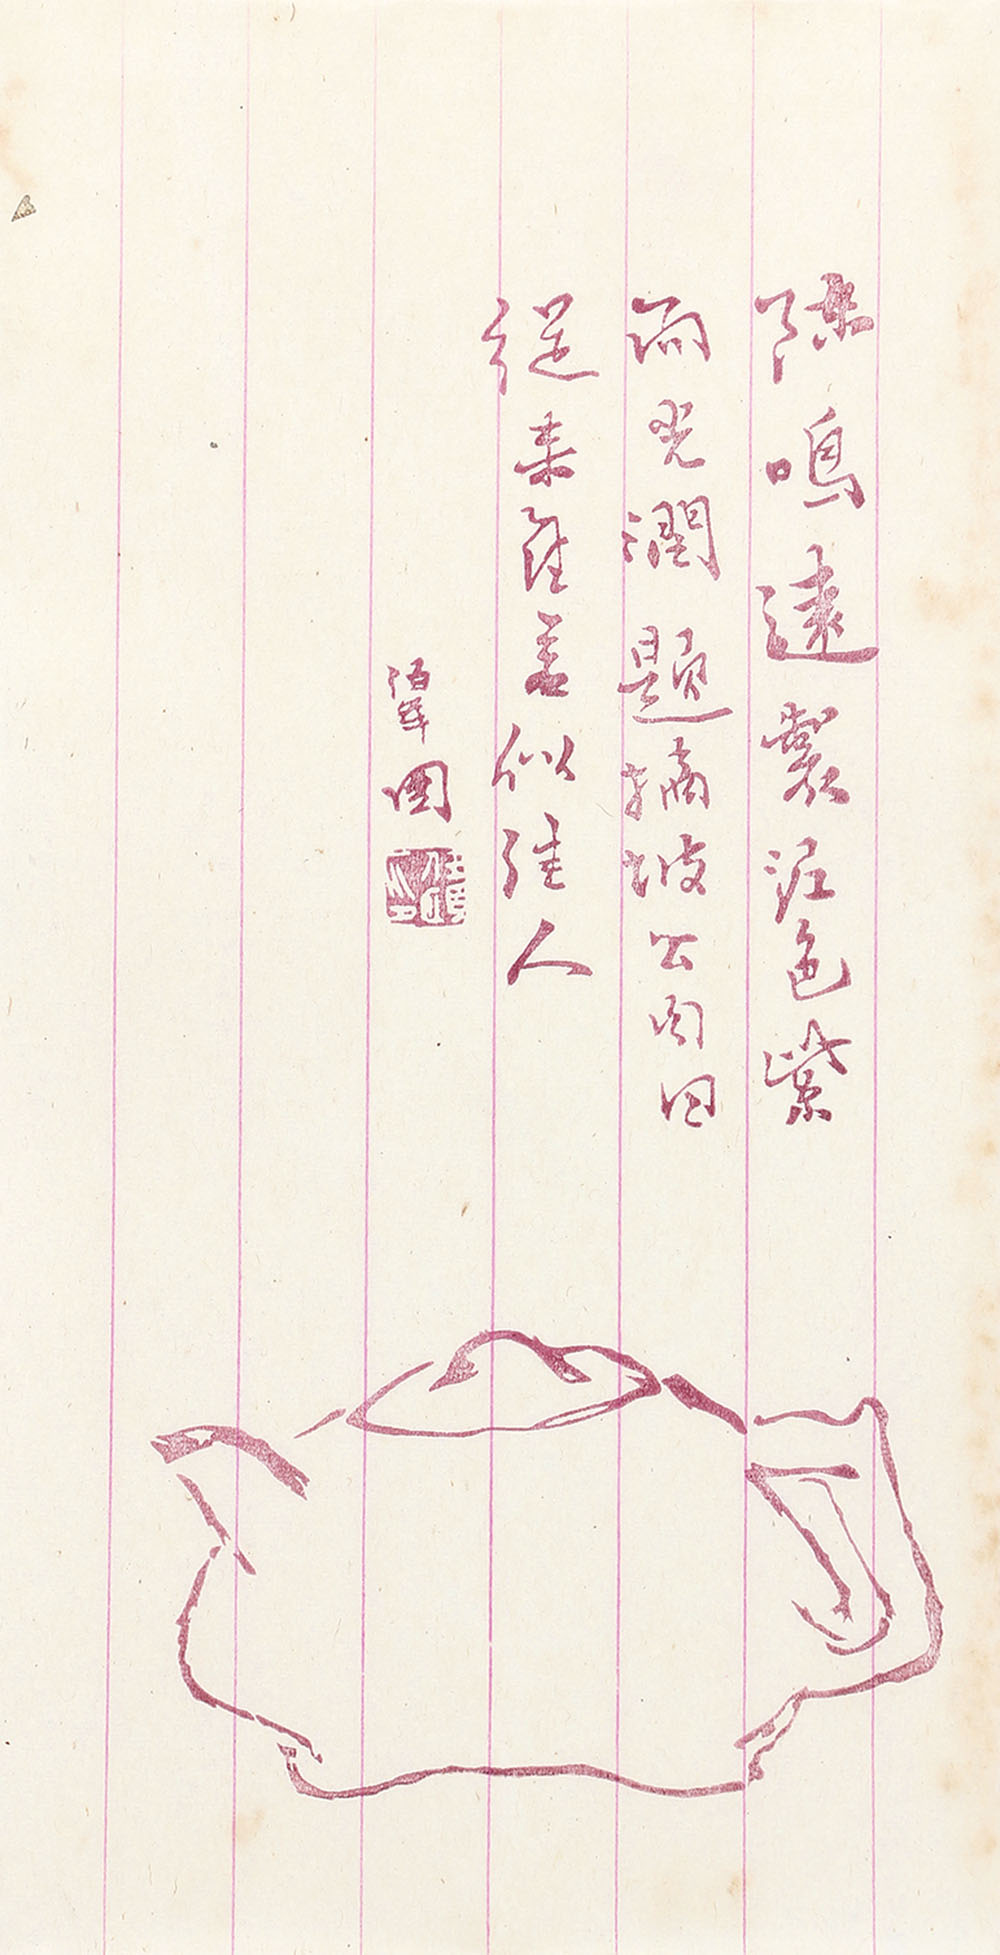 陳鳴遠製泥色紫
而光潤題摘坡公句曰
從來佳茗似佳人
伯年園